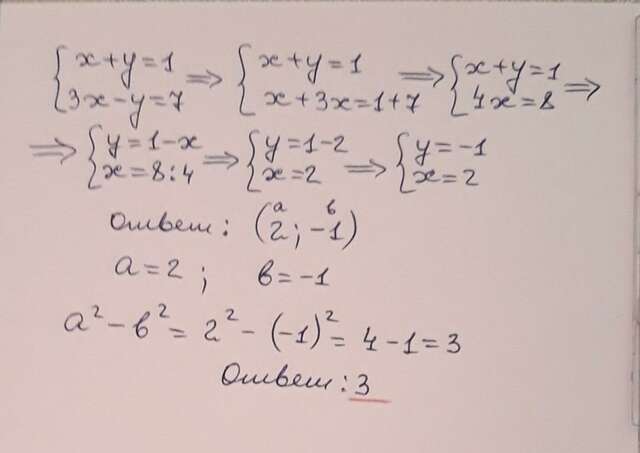 {x+y=1 3x-y=7 ⇒ {x+y=1 x+3x=1+7 ⇒ {x+y=1 4x=8 ⇒
⇒ {y=1-x x=8:4 ⇒ {y=1-2 x=2 ⇒ {y=-1 x=2
a в
Ответ: (2; -1)
a=2; в=-1
a²-в²=2²-(-1)²=4-1=3
Ответ: 3